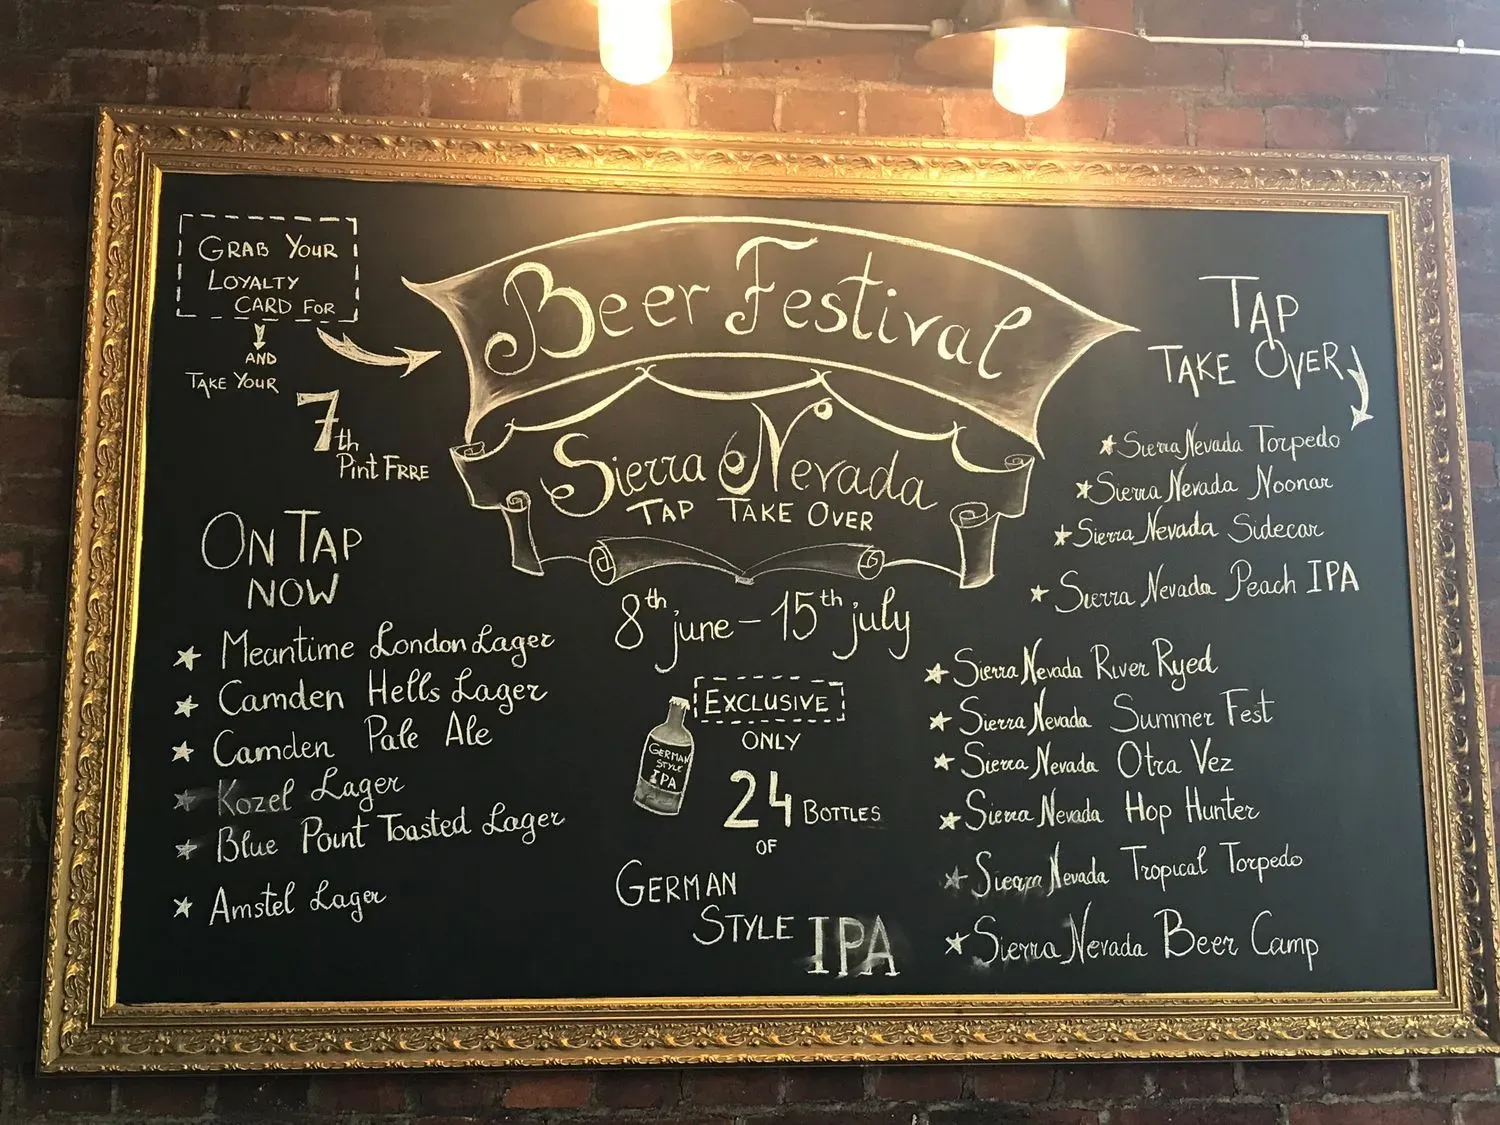 GRAB YOUR
LOYALTY
CARD FOR
AND
TAKE YOUR
7th
Pint FRRE
Beer Festival
Sierra Nevada
TAP TAKE OVER
8th june – 15th july
TAP
TAKE OVER
Sierra Nevada Torpedo
Sierra Nevada Noonar
Sierra Nevada Sidecar
Sierra Nevada Peach IPA
Sierra Nevada River Ryed
Sierra Nevada Summer Fest
Sierra Nevada Otra Vez
Sierra Nevada Hop Hunter
Sierra Nevada Tropical Torpedo
Sierra Nevada Beer Camp
ON TAP
NOW
Meantime London Lager
Camden Hells Lager
Camden Pale Ale
Kozel Lager
Blue Point Toasted Lager
Amstel Lager
GERMAN
STYLE
IPA
EXCLUSIVE
ONLY
24 BOTTLES
OF
GERMAN
STYLE IPA